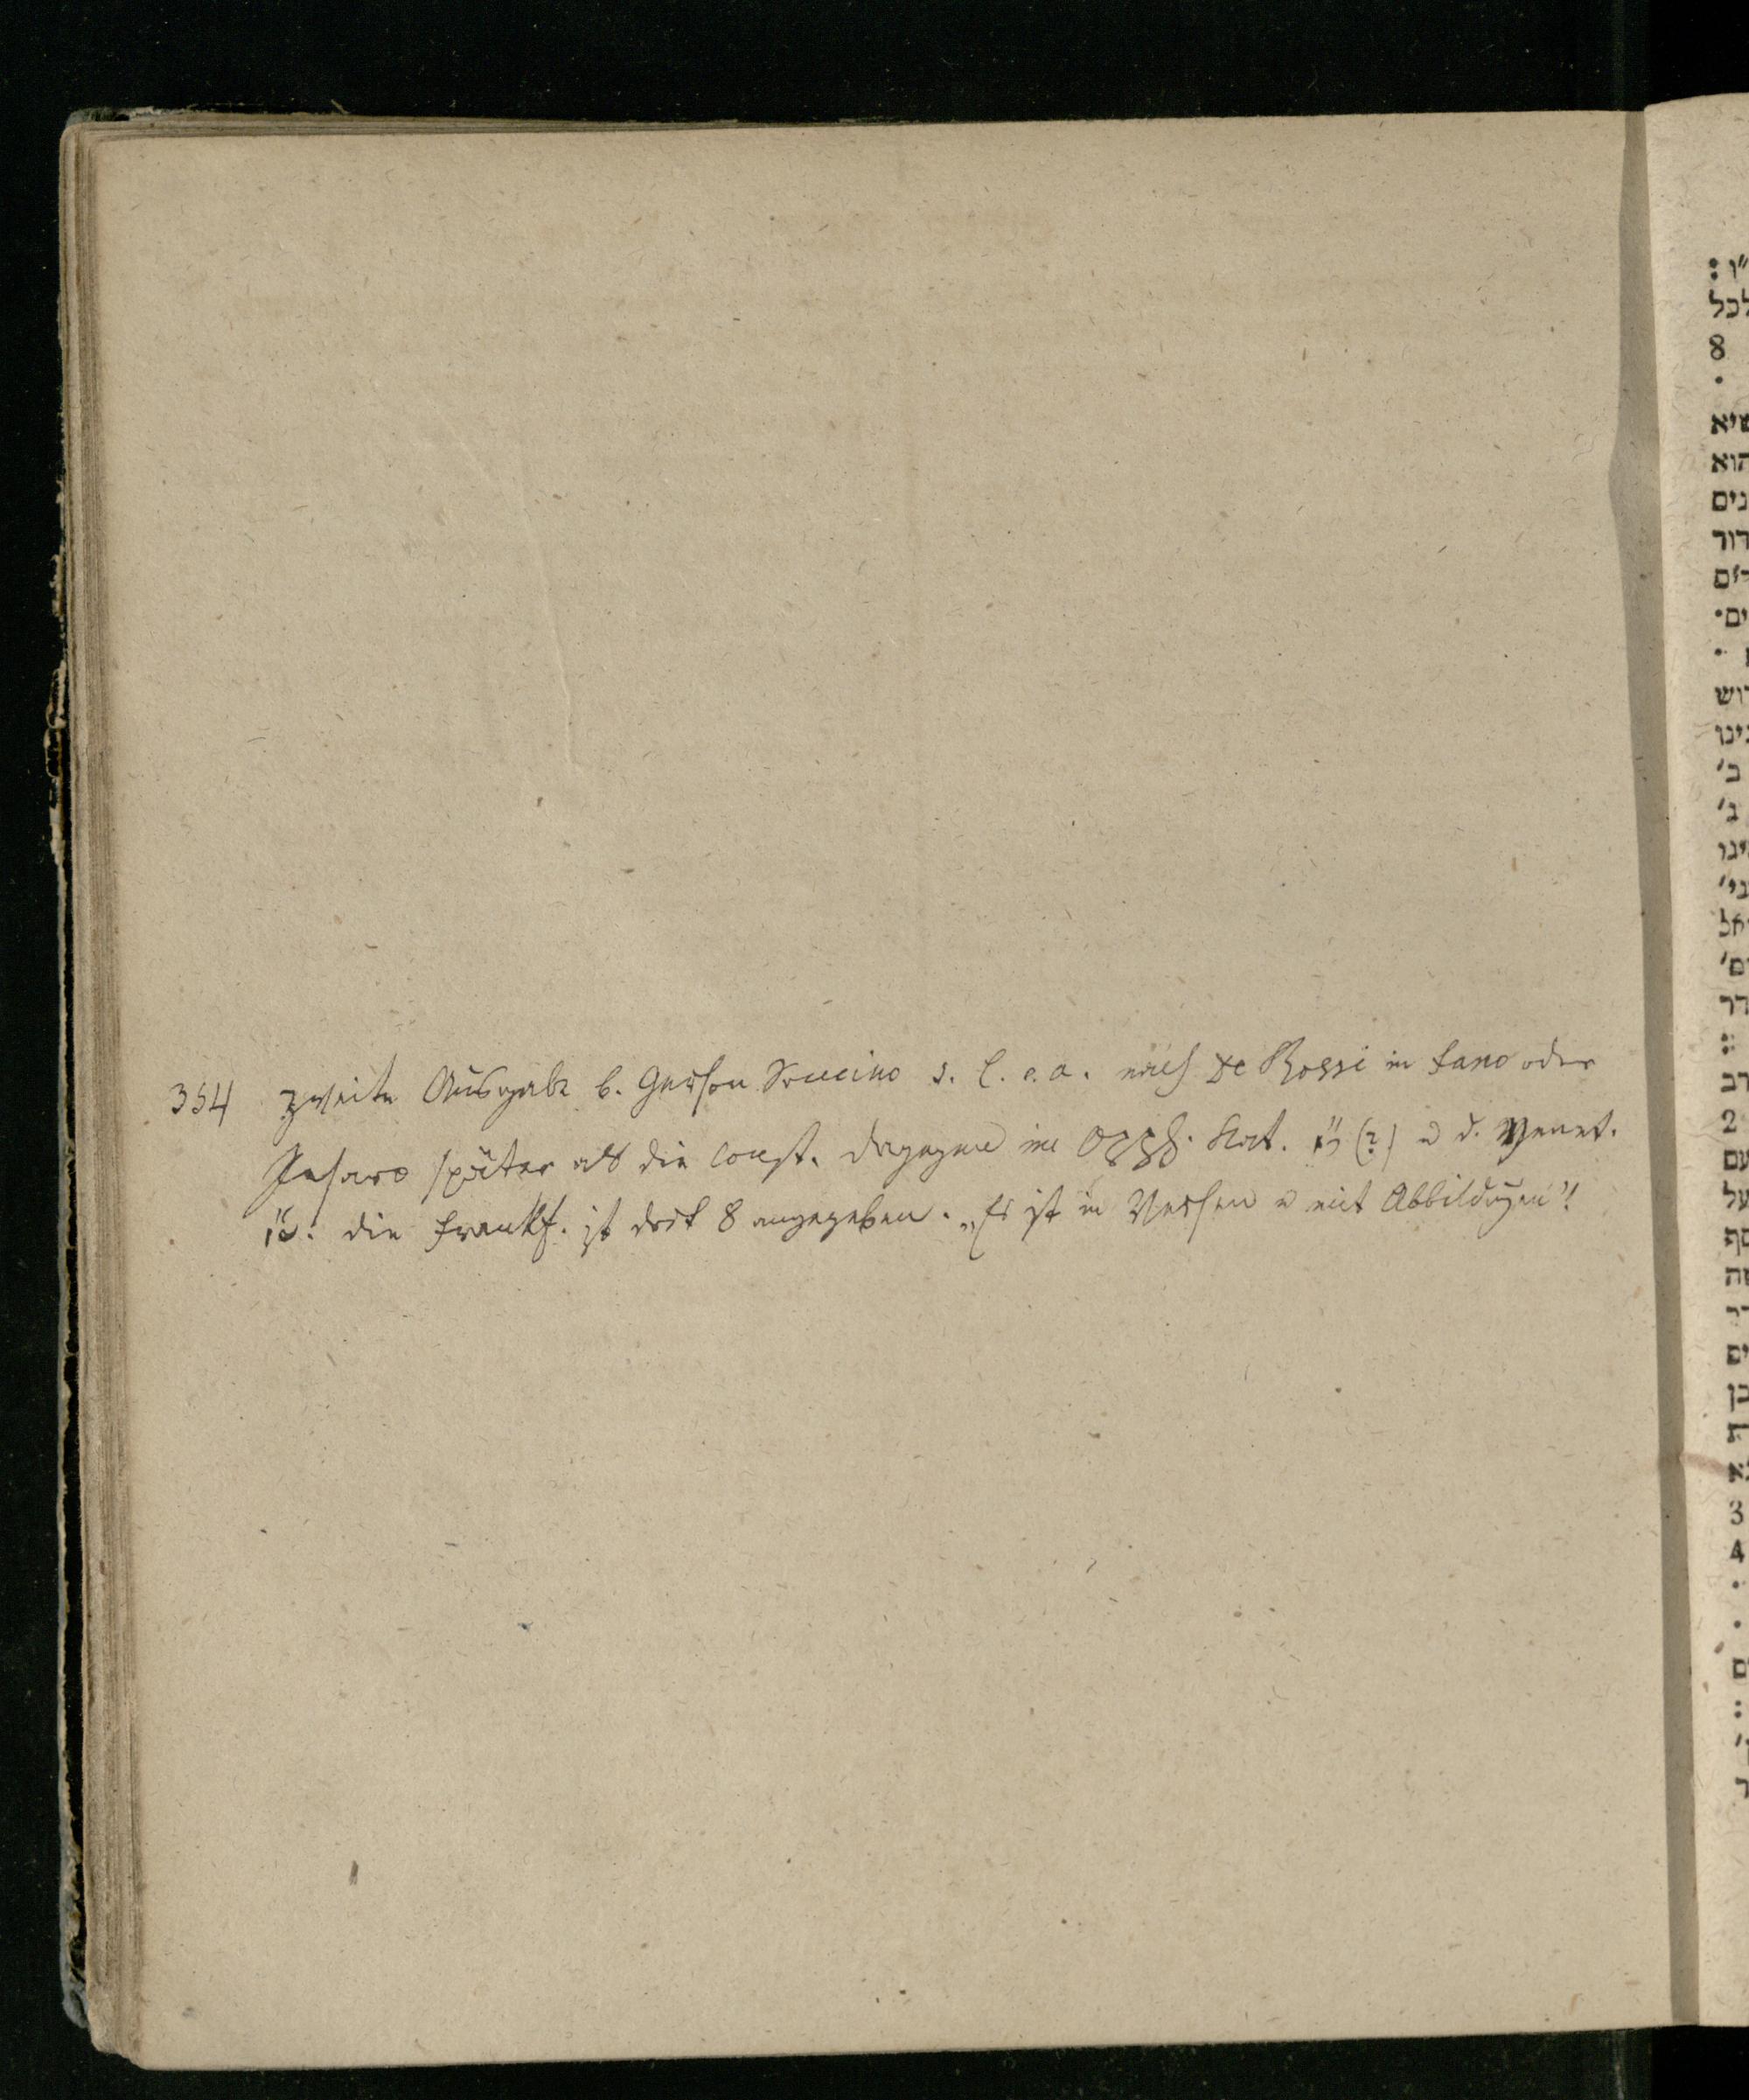 354 zweite Ausgabe b. Gerson Soncino s. l. e. a. nach De Rossi in Fano oder
Pesaro später als die Const. dagegen im Opph. Kat. (?) u d. Venet.
die Frankf. ist dort 8 angegeben. „Es ist in Versen u mit Abbildungen"!
לכל
8
שיא
הוא
נים
דור
ים
ב'
ג'
דר
רב
2
עם
על
סף
ים
בן
3
4